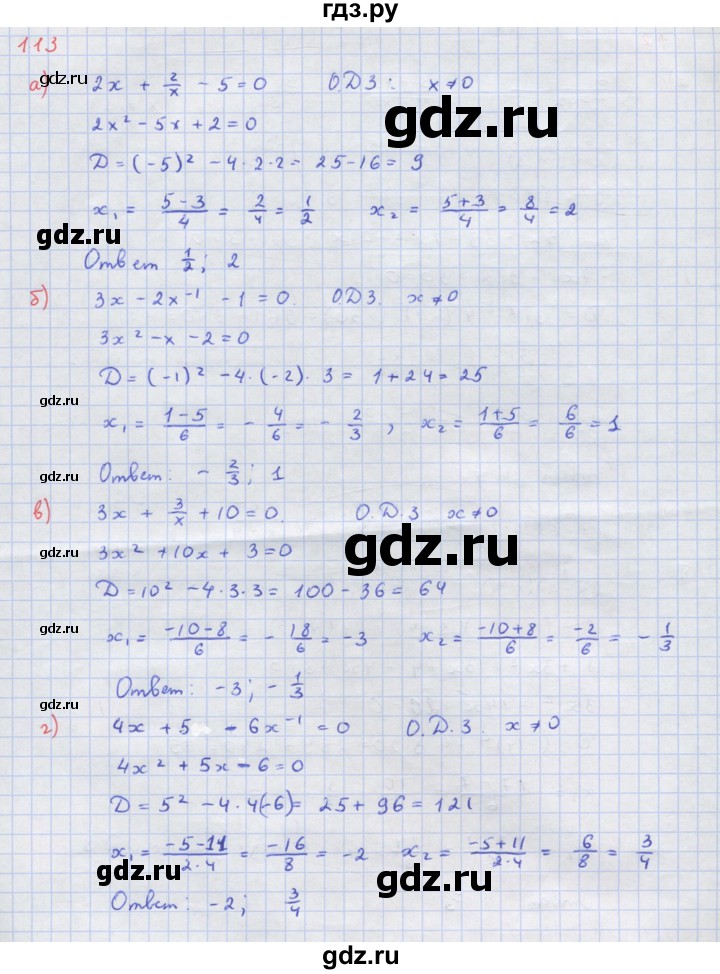 гдз.ру
113
а) 2x + 2/x - 5 = 0 О.Д.З: x ≠ 0
gdz.ru
gdz.ru
2x² - 5x + 2 = 0
gdz.ru
D = (-5)² - 4 · 2 · 2 = 25 - 16 = 9
x₁ = (5-3)/4 = 2/4 = 1/2 x₂ = (5+3)/4 = 8/4 = 2
gdz.ru
Ответ 1/2; 2
б) 3x - 2x⁻¹ - 1 = 0. О.Д.З. x ≠ 0
gdz.ru
3x² - x - 2 = 0
D = (-1)² - 4 · (-2) · 3 = 1 + 24 = 25
gdz.ru
x₁ = (1-5)/6 = - 4/6 = - 2/3 , x₂ = (1+5)/6 = 6/6 = 1
gdz.ru
Ответ: - 2/3; 1
в) 3x + 3/x + 10 = 0. О.Д.З x ≠ 0
gdz.ru
gdz.ru
3x² + 10x + 3 = 0
D = 10² - 4 · 3 · 3 = 100 - 36 = 64
gdz.ru
x₁ = (-10-8)/6 = - 18/6 = -3 x₂ = (-10+8)/6 = -2/6 = - 1/3
Ответ: -3; - 1/3
gdz.ru
г) 4x + 5 - 6x⁻¹ = 0 О.Д.З. x ≠ 0
4x² + 5x - 6 = 0
D = 5² - 4 · 4(-6) = 25 + 96 = 121
x₁ = (-5-11)/(2·4) = -16/8 = -2 x₂ = (-5+11)/(2·4) = 6/8 = 3/4
gdz.ru
gdz.ru
Ответ: -2; 3/4
gdz.ru